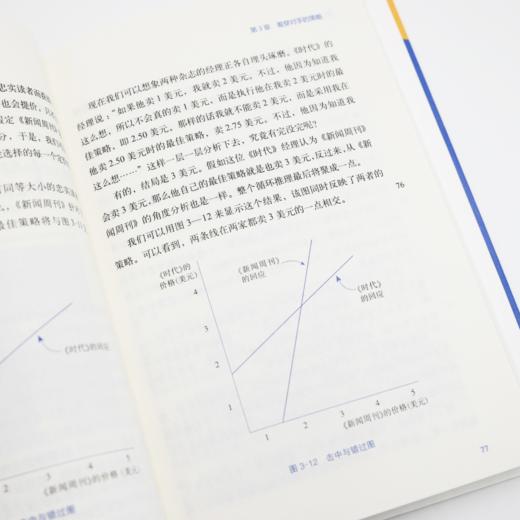 忠实读者而彼
也会提价，只
假定《新闻周
分，于是，我们
选择的每一个定
有同等大小的忠实
元。《新闻周刊》
最佳策略将与图3-
《时代》的回应
2 3 4 5
《新闻周刊》的价格(美元)
击中与错过图
第3章 看穿对手的策略
现在我们可以想象两种杂志的经理正各自埋头琢磨。《时代》的
经理说：“如果他卖1美元，我就卖2美元。不过，他因为知道我
这么想，所以不会真的卖1美元，而是执行他在我卖2美元时的最
佳策略，即2.50美元。那样的话我就不能卖2美元，而是采用我在
他卖2.50美元时的最佳策略，卖2.75美元。不过，他因为知道我
这么想……”这样一层一层分析下去，究竟有完没完呢？
有的，结局是3美元。假如这位《时代》经理认为《新闻周刊》
会卖3美元，那么他自己的最佳策略就是也卖3美元，反过来，从《新
闻周刊》的角度分析也是一样。整个循环推理最后将聚成一点。
我们可以用图3—12来显示这个结果，该图同时反映了两者的
策略。可以看到，两条线在两家都卖3美元的一点相交。
76
《时代》的
价格(美元)
《新闻周刊》
的回应
《时代》
的回应
4
3
2
1
1 2 3 4 5
《新闻周刊》的价格(美元)
图 3-12 击中与错过图
77